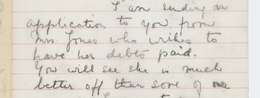 I am sending an
application to you from
Mrs. Jones who wishes to
have her debts paid.
You will see she is much
better off than some of